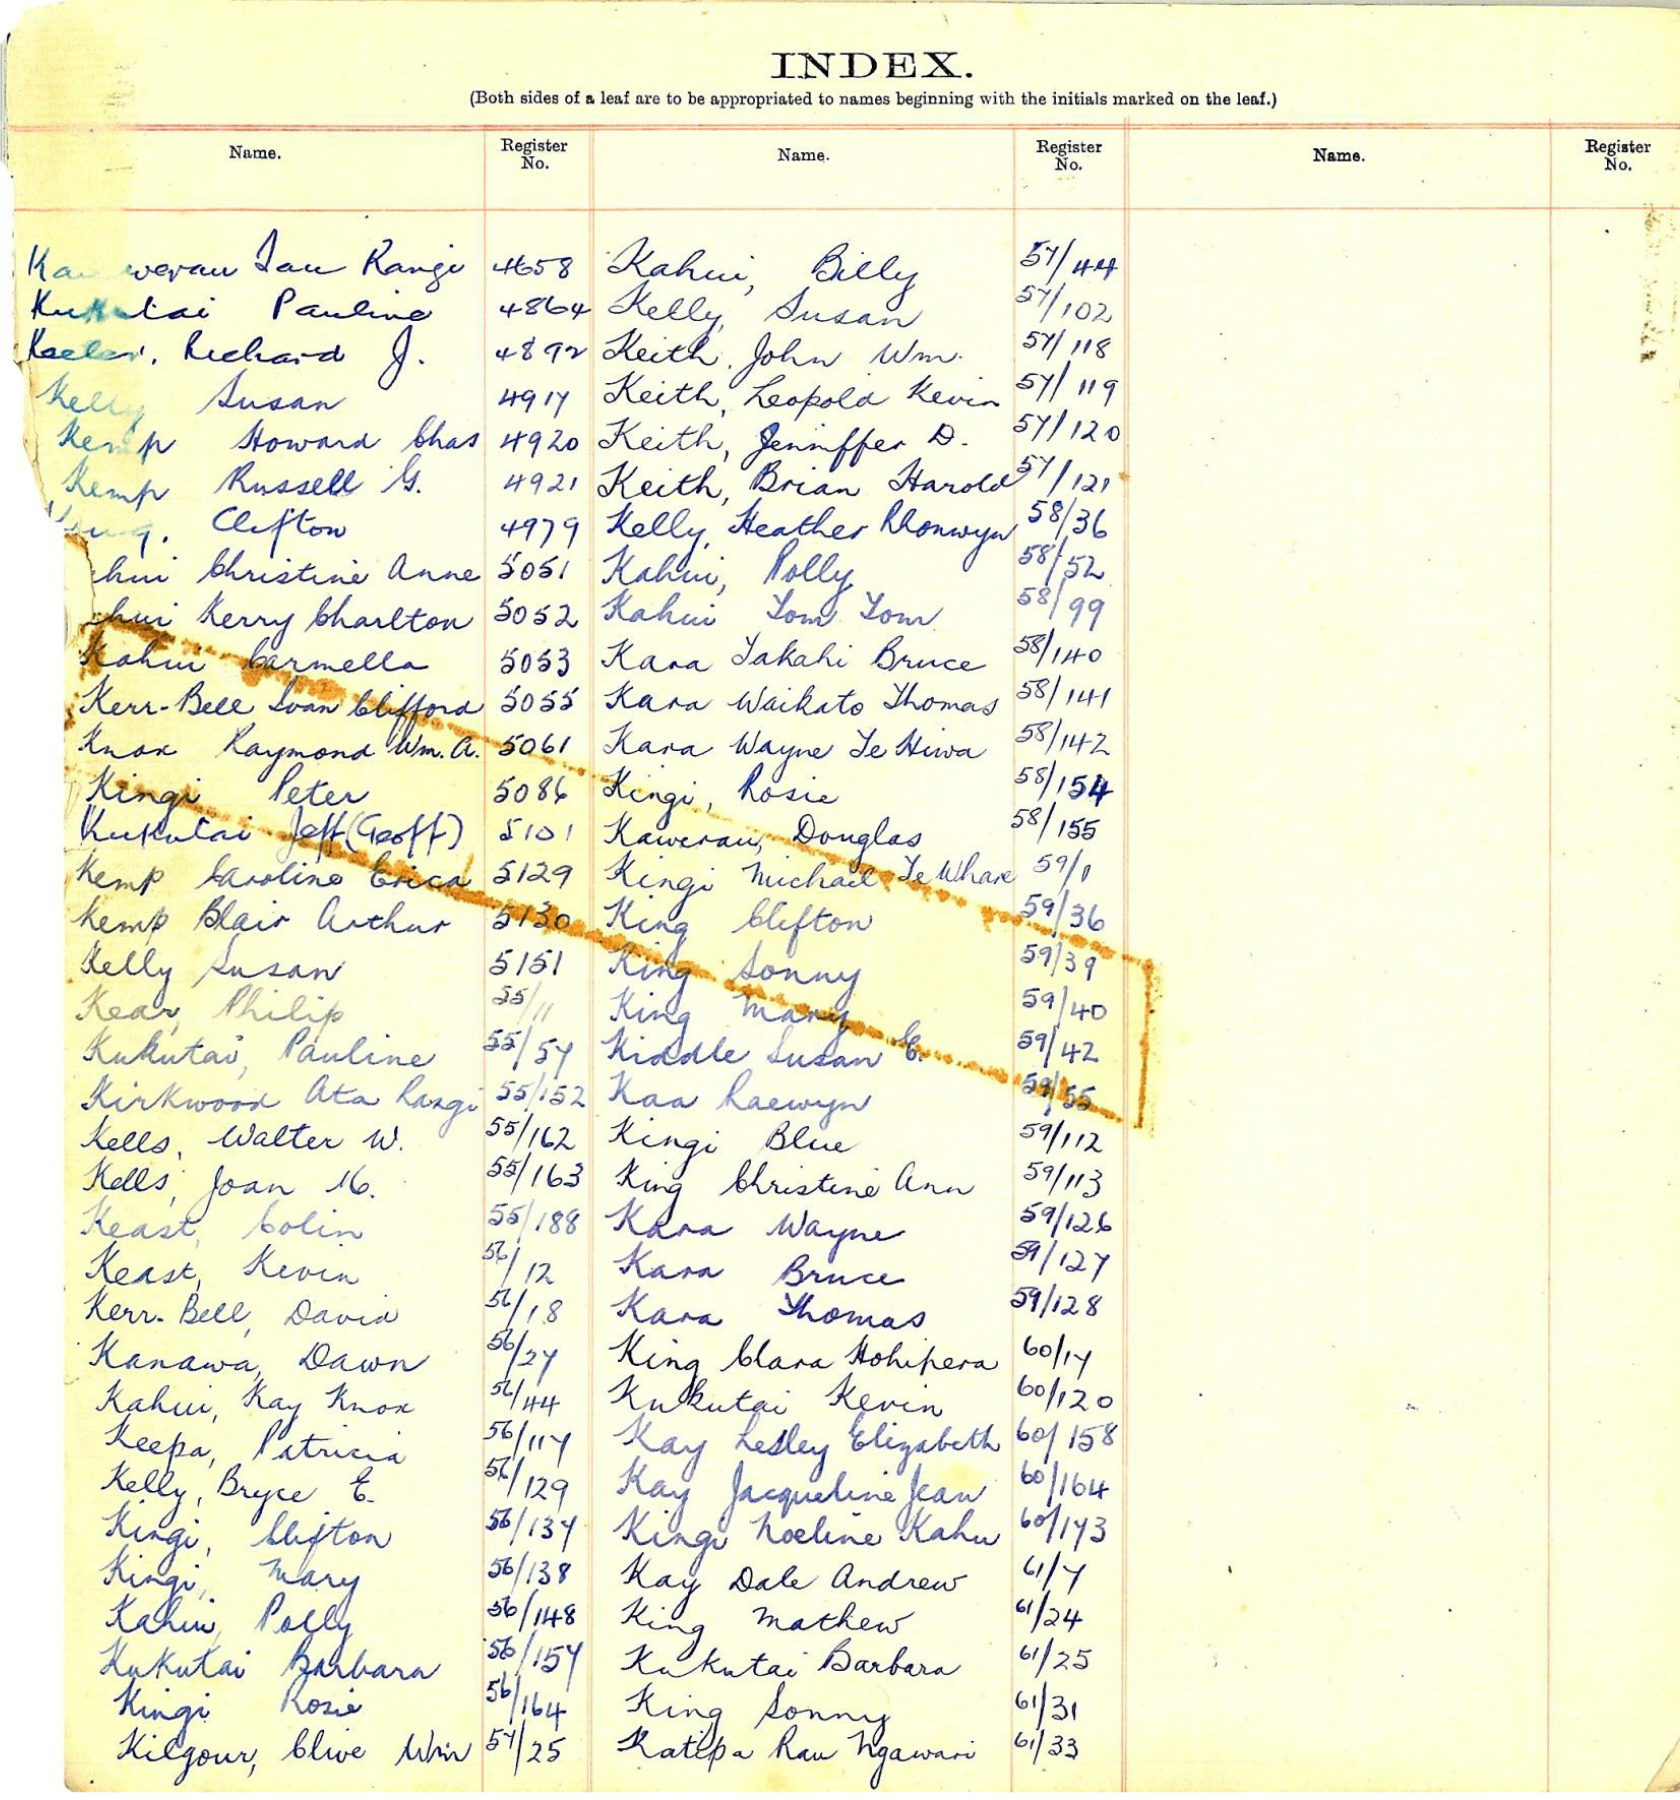 INDEX.
(Both sides of a leaf are to be appropriated to names beginning with the initials marked on the leaf.)
Name. Register No. Name. Register No. Name. Register No.
Tau Rangi 4658 Kahui, Billy 57/44
Kukutai Pauline 4864 Kelly, Susan 57/102
Richard J. 4892 Keith, John Wm. 57/118
Kelly Susan 4917 Keith, Leopold Kevin 57/119
Kemp Howard Chas 4920 Keith, Jeniffer D. 57/120
Kemp Russell G. 4921 Keith, Brian Harold 57/121
Clifton 4979 Kelly, Heather Rhonwyn 58/36
hui Christine Anne 5051 Kahui, Polly 58/52
hui Kerry Charlton 5052 Kahui Tom Tom 58/99
Kahui Carmella 5053 Kara Takahi Bruce 58/140
Kerr-Bell Ivan Clifford 5055 Kara Waikato Thomas 58/141
Knox Raymond Wm. A. 5061 Kara Wayne Te Hiwa 58/142
Kingi Peter 5086 Kingi, Rosie 58/154
Kukutai Jeff (Geoff) 5101 Kawerau, Douglas 58/155
Kemp Caroline Erica 5129 Kingi Michael Te Whare 59/1
Kemp Blair Arthur 5130 King Clifton 59/36
Kelly Susan 5151 King Sonny 59/39
Kear, Philip 55/11 King Mary 59/40
Kukutai, Pauline 55/57 Kiddle Susan E. 59/42
Kirkwood Ata Rangi 55/152 Kaa Raewyn 59/55
Kells, Walter W. 55/162 Kingi Blue 59/112
Kells, Joan M. 55/163 King Christine Ann 59/113
Keast, Colin 55/188 Kara Wayne 59/126
Keast, Kevin 56/12 Kara Bruce 59/127
Kerr-Bell, David 56/18 Kara Thomas 59/128
Kanawa, Dawn 56/27 King Clara Hohipera 60/17
Kahui, Kay Knox 56/44 Kukutai Kevin 60/120
Keepa, Patricia 56/117 Kay Lesley Elizabeth 60/158
Kelly, Bryce E. 56/129 Kay Jacqueline Jean 60/164
Kingi, Clifton 56/137 Kingi Noeline Kahu 60/173
Kingi, Mary 56/138 Kay Dale Andrew 61/7
Kahui, Polly 56/148 King Mathew 61/24
Kukutai Barbara 56/157 Kukutai Barbara 61/25
Kingi Rosie 56/164 King Sonny 61/31
Kilgour, Clive Wm 57/25 Katipa Rau Ngawari 61/33